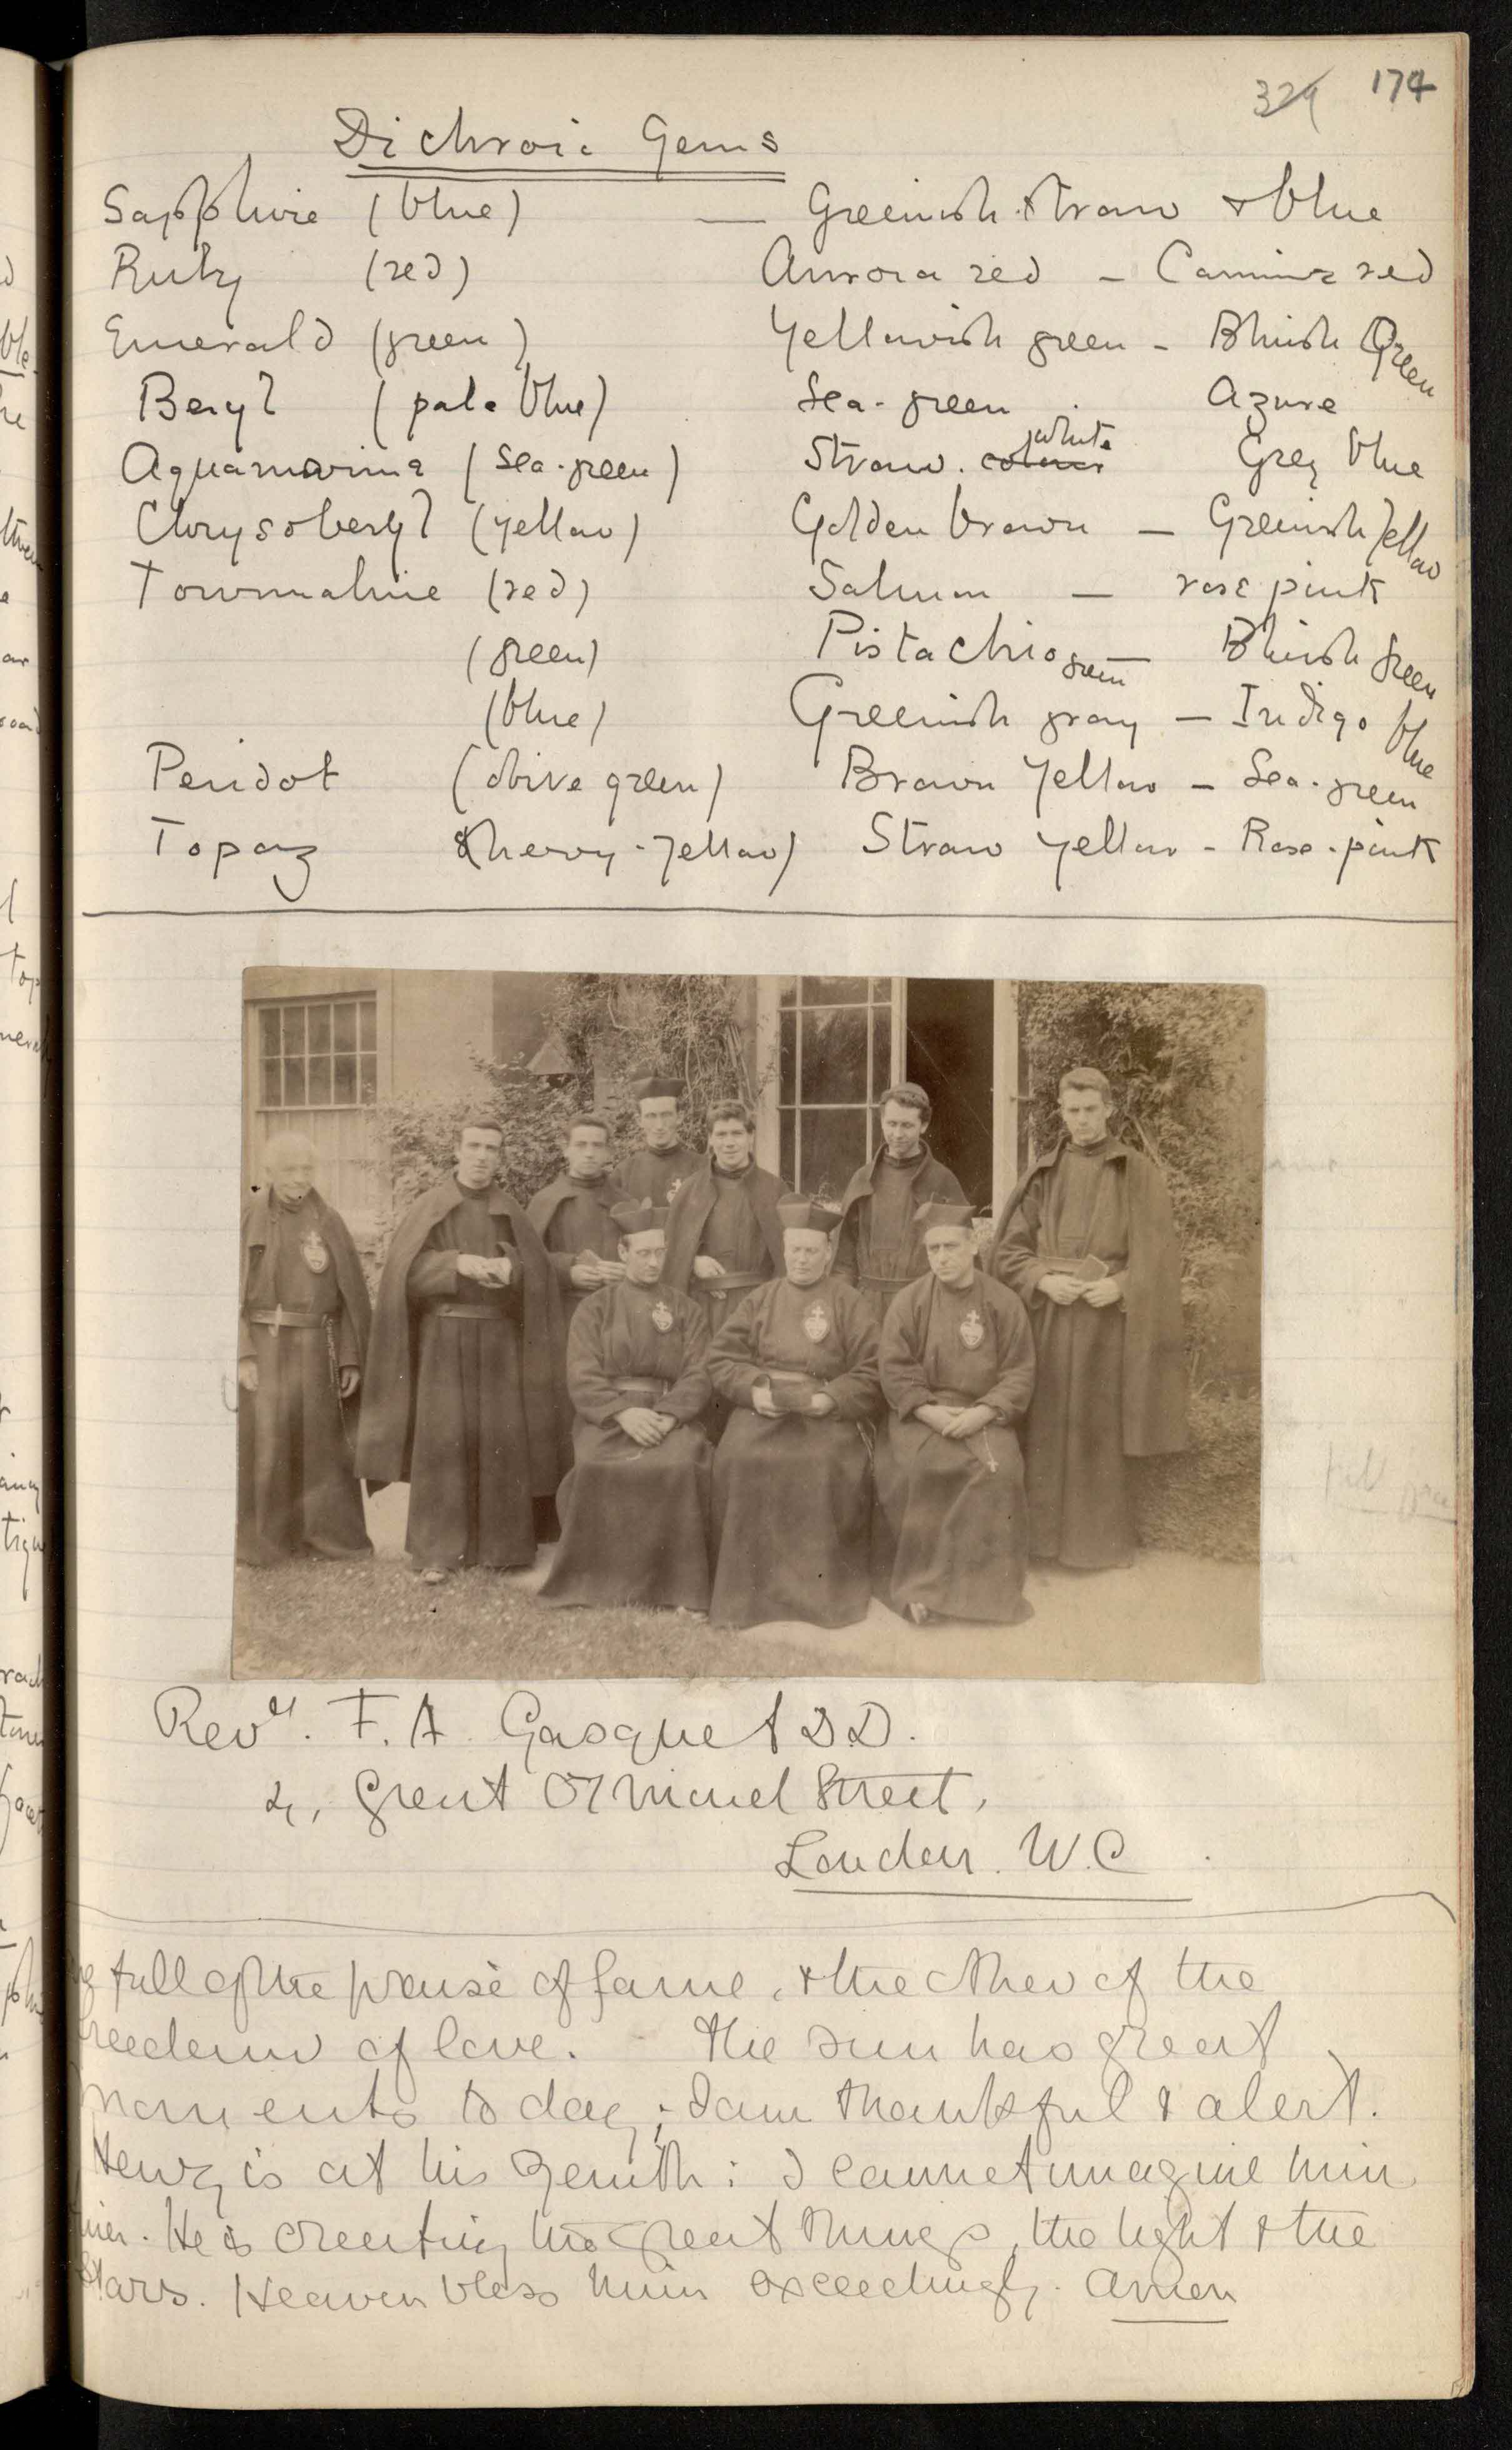 324 174
Dichroic Gems
Sapphire (blue) — Greenish straw & blue
Ruby (red) Aurora red - Carmine red
Emerald (green) Yellowish green - Bluish Green
Beryl (pale blue) Sea-green Azure
Aquamarine (sea-green) Straw. colour white Grey blue
Chrysoberyl (yellow) Golden brown — Greenish Yellow
Tourmaline (red) Salmon — rose pink
(green) Pistachio green — Bluish green
(blue) Greenish gray — Indigo blue
Peridot (olive green) Brown Yellow - Sea-green
Topaz (sherry-yellow) Straw yellow - Rose-pink
Revd. F. A. Gasquet D.D.
4, Great Ormond Street,
London. W.C.
full of the praise of fame, & the other of the
freedom of love. The sun has great
moments to day; I am thankful & alert.
Henry is at his Zenith: I cannot imagine him
He is creating the great things, the light & the
Stars. Heaven bless him exceedingly. Amen